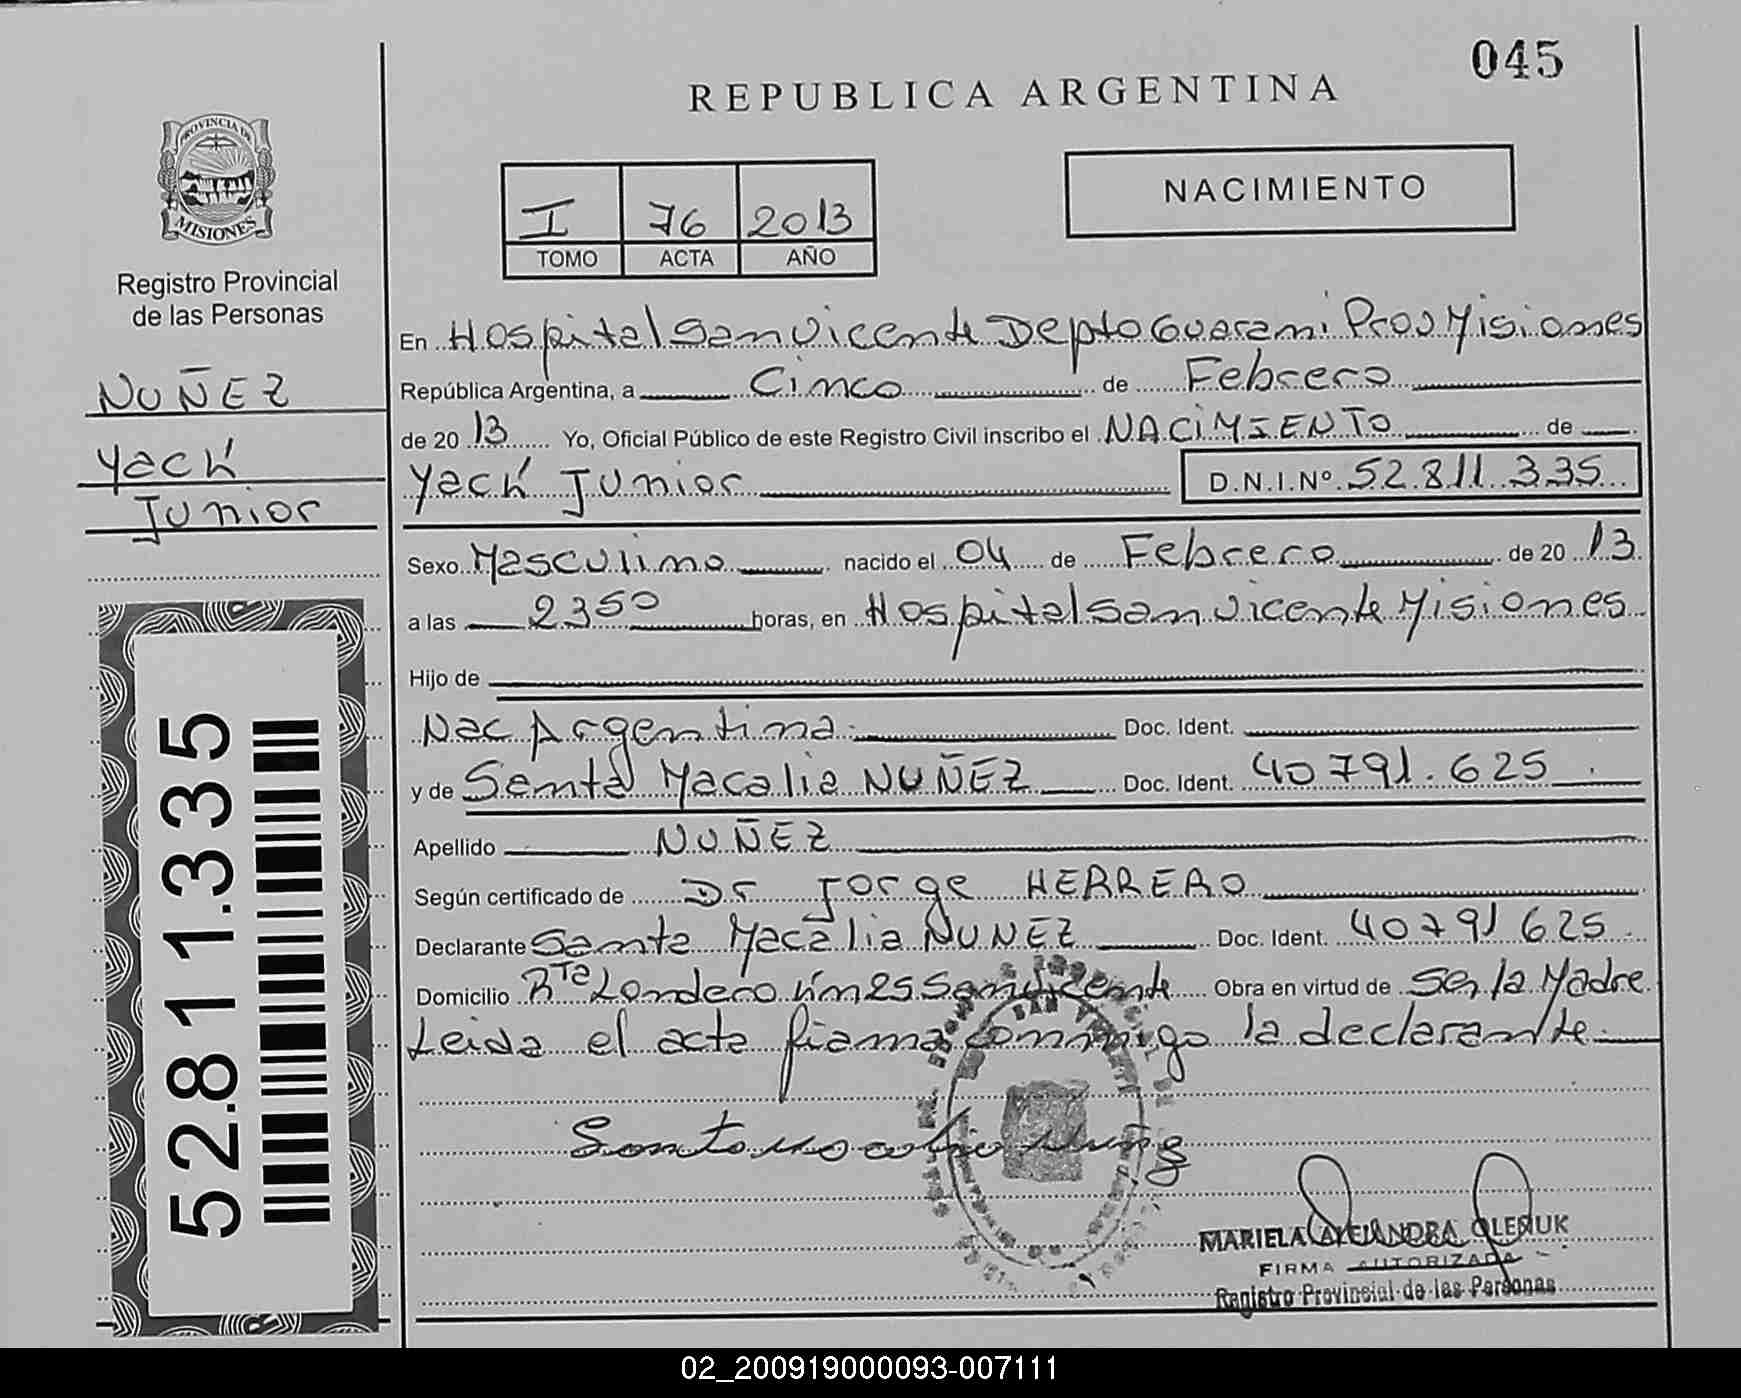 045
REPUBLICA ARGENTINA
PROVINCIA DE
MISIONES
Registro Provincial
de las Personas
NUÑEZ
Yack
Junior
52.811.335
I 76 2013
TOMO ACTA AÑO
NACIMIENTO
En Hospital San Vicente Depto Guarani Prov Misiones
República Argentina, a Cinco de Febrero
de 2013 Yo, Oficial Público de este Registro Civil inscribo el NACIMIENTO de
Yack Junior D.N.I.Nº 52.811.335
Sexo Masculino nacido el 04 de Febrero de 2013
a las 2350 horas, en Hospital San Vicente Misiones
Hijo de
Nac Argentina Doc. Ident.
y de Santa Macalia NUÑEZ Doc. Ident. 40791.625
Apellido NUÑEZ
Según certificado de Dr Jorge HERRERO
Declarante Santa Macalia NUÑEZ Doc. Ident. 40791625
Domicilio Londero San Vicente Obra en virtud de Ser la Madre
Leida el acta firma conmigo la declarante
Santa Macalia Nuñez
MARIELA ALEJANDRA OLENIUK
FIRMA AUTORIZADA
Registro Provincial de las Personas
02_200919000093-007111